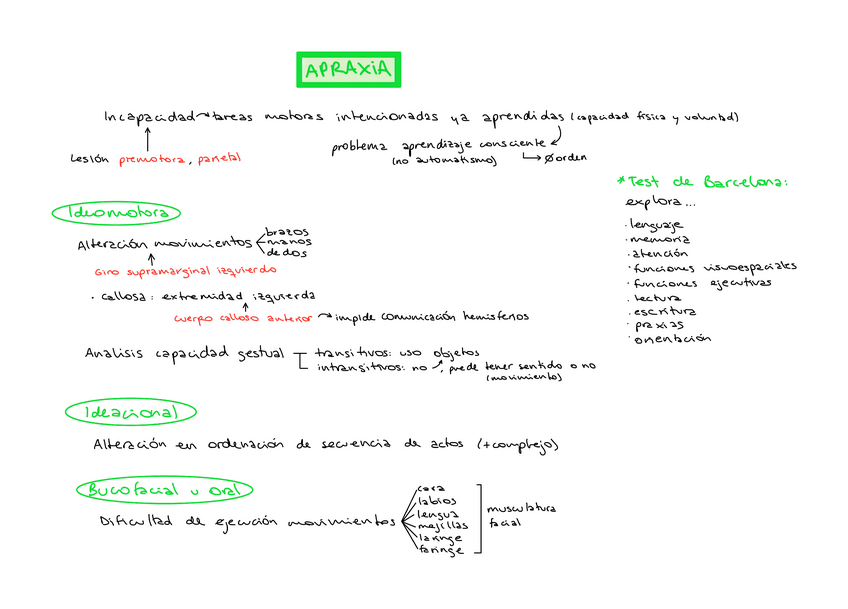 APRAXiA
Incapacidad → tareas motoras intencionadas ya aprendidas (capacidad física y voluntad)
Lesión premotora, parietal
problema aprendizaje consciente
(no automatismo) → Ø orden
*Test de Barcelona:
explora...
· lenguaje
· memoria
· atención
· funciones visuoespaciales
· funciones ejecutivas
· lectura
· escritura
· praxias
· orientación
Ideomotora
Alteración movimientos
brazos
manos
dedos
Giro supramarginal izquierdo
· callosa: extremidad izquierda
cuerpo calloso anterior → impide comunicación hemisferios
Análisis capacidad gestual
transitivos: uso objetos
intransitivos: no ↗, puede tener sentido o no
(movimiento)
Ideacional
Alteración en ordenación de secuencia de actos (+complejo)
Bucofacial u Oral
Dificultad de ejecución movimientos
cara
labios
lengua
mejillas
laringe
faringe
musculatura
facial